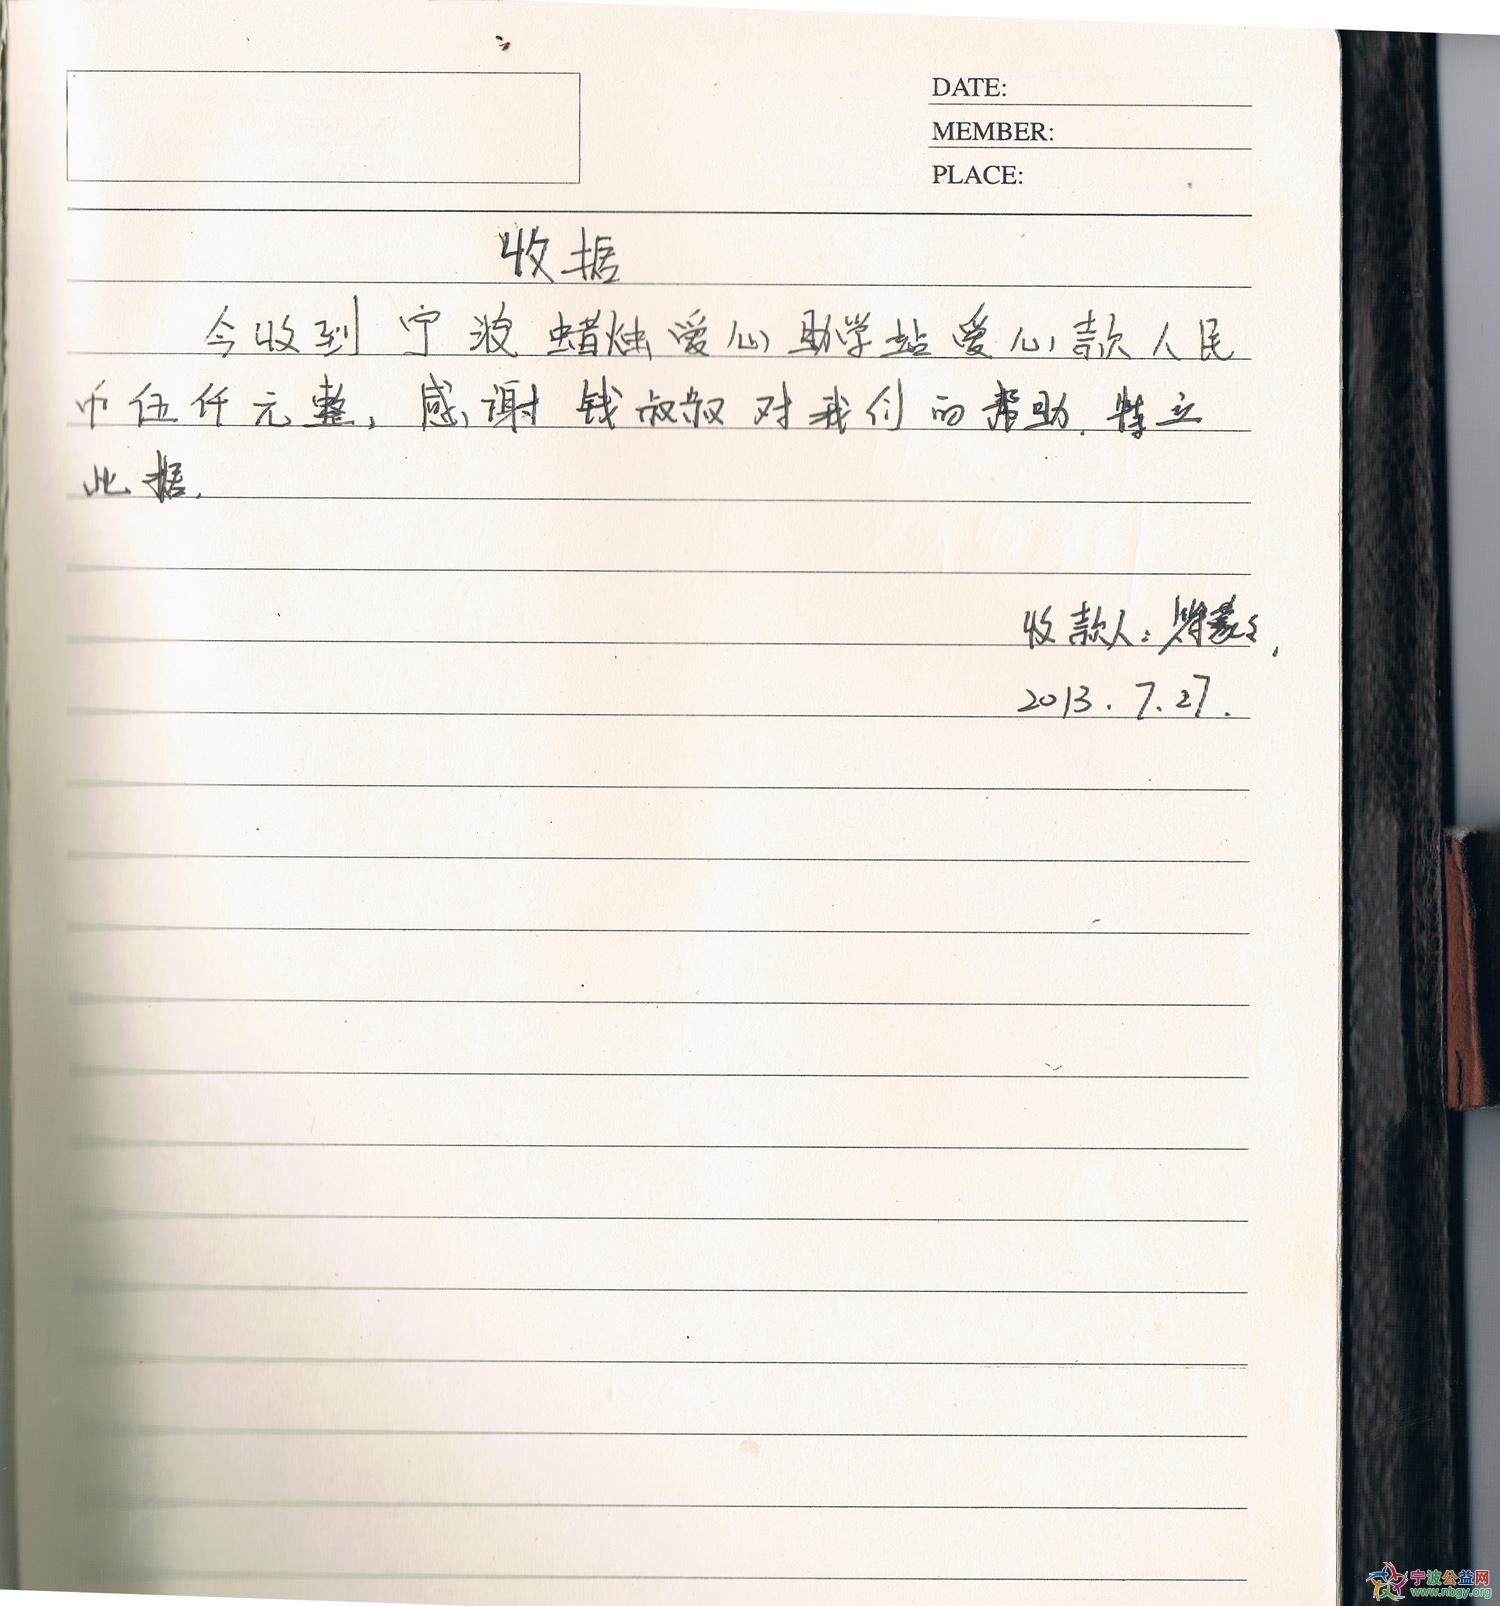 DATE:
MEMBER:
PLACE:
收据
今收到宁波蜡烛爱心助学站爱心款人民
币伍仟元整,感谢钱叔叔对我们的帮助.特立
此据.
收款人:
2013.7.27.
宁波公益网
www.nbgy.org